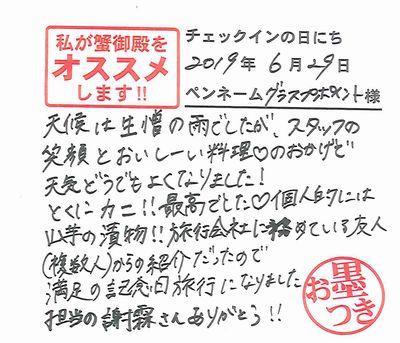 私が蟹御殿を
オススメ
します!!
チェックインの日にち
2019年 6月 29日
ペンネームグラスプポイント様
天候は生憎の雨でしたが、スタッフの
笑顔とおいしーい料理♡のおかげで
天気どうでもよくなりました!
とくにカニ!!最高でした♡個人的には
山芋の漬物!!旅行会社に務めている友人
(複数人)からの紹介だったので
満足の記念日旅行になりました
担当の謝霖さんありがとう!!
お墨つき